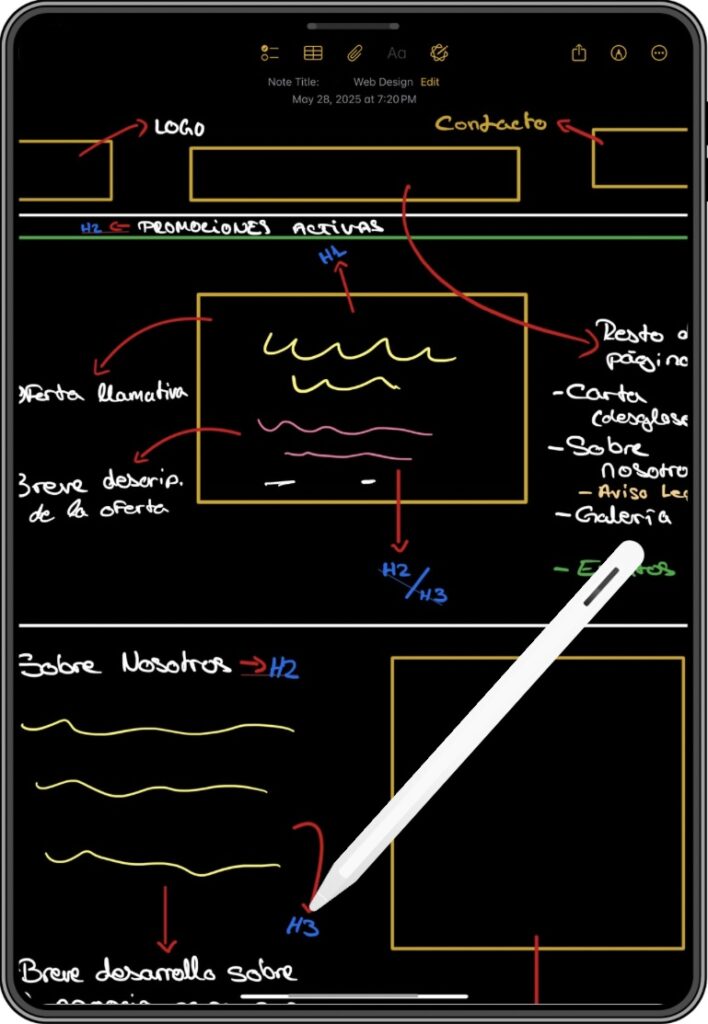 Aa
Note Title: Web Design Edit
May 28, 2025 at 7:20 PM
LOGO
Contacto
H2 PROMOCIONES ACTIVAS
H1
Resto d
página
Oferta llamativa
- Carta
(desglose
- Sobre
nosotro
- Aviso Leg
- Galería
Breve descrip.
de la oferta
H2/H3
Sobre Nosotros H2
H3
Breve desarrollo sobre